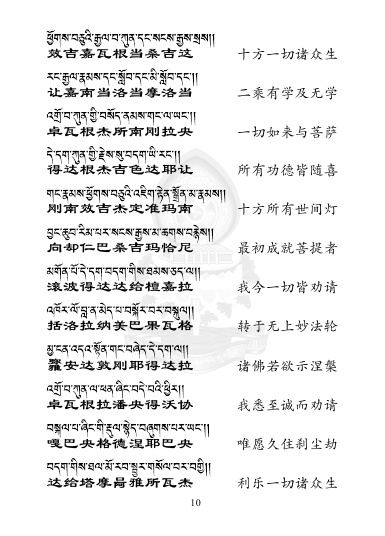 ཕྱོགས་བཅུའི་རྒྱལ་བ་ཀུན་དང་སངས་རྒྱས་སྲས།།
效吉嘉瓦根当桑吉这 十方一切诸众生
རང་རྒྱལ་རྣམས་དང་སློབ་དང་མི་སློབ་དང་།།
让嘉南当洛当摩洛当 二乘有学及无学
འགྲོ་བ་ཀུན་གྱི་བསོད་ནམས་གང་ལ་ཡང་།།
卓瓦根杰所南刚拉央 一切如来与菩萨
དེ་དག་ཀུན་གྱི་རྗེས་སུ་བདག་ཡི་རང་།།
得达根杰吉色达耶让 所有功德皆随喜
གང་རྣམས་ཕྱོགས་བཅུའི་འཇིག་རྟེན་སྒྲོན་མ་རྣམས།།
刚南效吉杰定准玛南 十方所有世间灯
བྱང་ཆུབ་རིམ་པར་སངས་རྒྱས་མ་ཆགས་བརྙེས།།
向却仁巴桑吉玛恰尼 最初成就菩提者
མགོན་པོ་དེ་དག་བདག་གིས་ཐམས་ཅད་ལ།།
滚波得达达给檀嘉拉 我今一切皆劝请
འཁོར་ལོ་བླ་ན་མེད་པ་བསྐོར་བར་བསྐུལ།།
括洛拉纳美巴果瓦格 转于无上妙法轮
མྱ་ངན་འདའ་སྟོན་གང་བཞེད་དེ་དག་ལ།།
安达敦刚耶得达拉 诸佛若欲示涅槃
འགྲོ་བ་ཀུན་ལ་ཕན་ཞིང་བདེ་བའི་ཕྱིར།།
卓瓦根拉潘央得沃协 我悉至诚而劝请
བསྐལ་པ་ཞིང་གི་རྡུལ་སྙེད་བཞུགས་པར་ཡང་།།
嘎巴央格德涅耶巴央 唯愿久住刹尘劫
བདག་གིས་ཐལ་མོ་རབ་སྦྱར་གསོལ་བར་བགྱི།།
达给塔摩曷雅所瓦杰 利乐一切诸众生
10